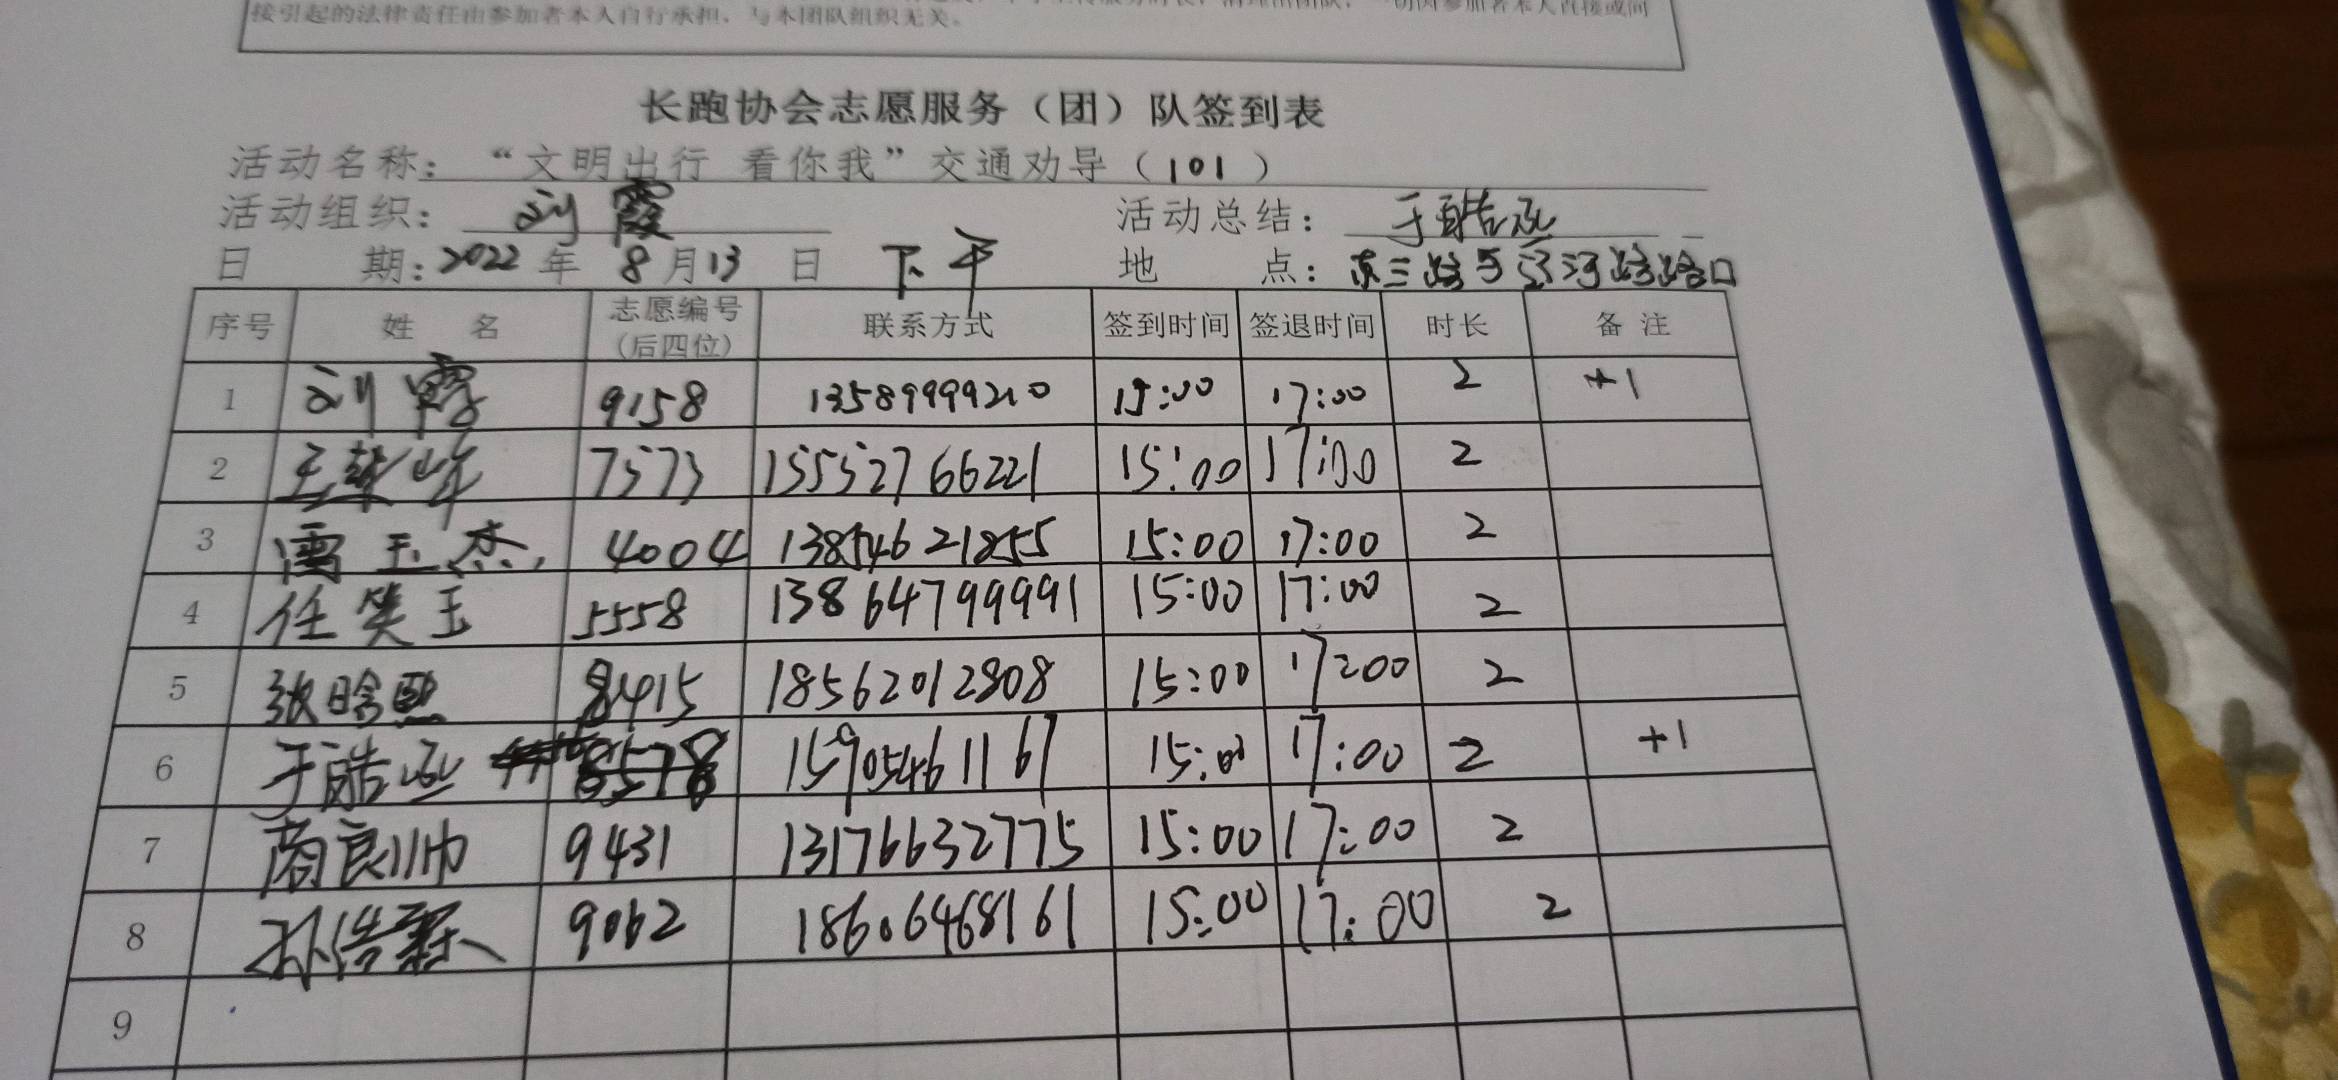 接引起的法律责任由参加者本人自行承担，与本团队组织无关。
长跑协会志愿服务（团）队签到表
活动名称：“文明出行 看你我”交通劝导（101）
活动组织：刘霞 活动总结：于皓丞
日 期：2022年 8月13 日 下午 地 点：东三路与运河路路口
序号 姓 名 志愿编号（后四位） 联系方式 签到时间 签退时间 时长 备 注
1 刘霞 9158 13589999210 15:00 17:00 2 +1
2 王 7573 15552766221 15:00 17:00 2
3 雷玉杰 4004 13854621855 15:00 17:00 2
4 任笑玉 5558 138647999991 15:00 17:00 2
5 张晗熙 8415 18562012808 15:00 17:00 2
6 于皓丞 8578 15905461167 15:00 17:00 2 +1
7 商良帅 9431 13176632775 15:00 17:00 2
8 孙浩霖 9062 18606468161 15:00 17:00 2
9